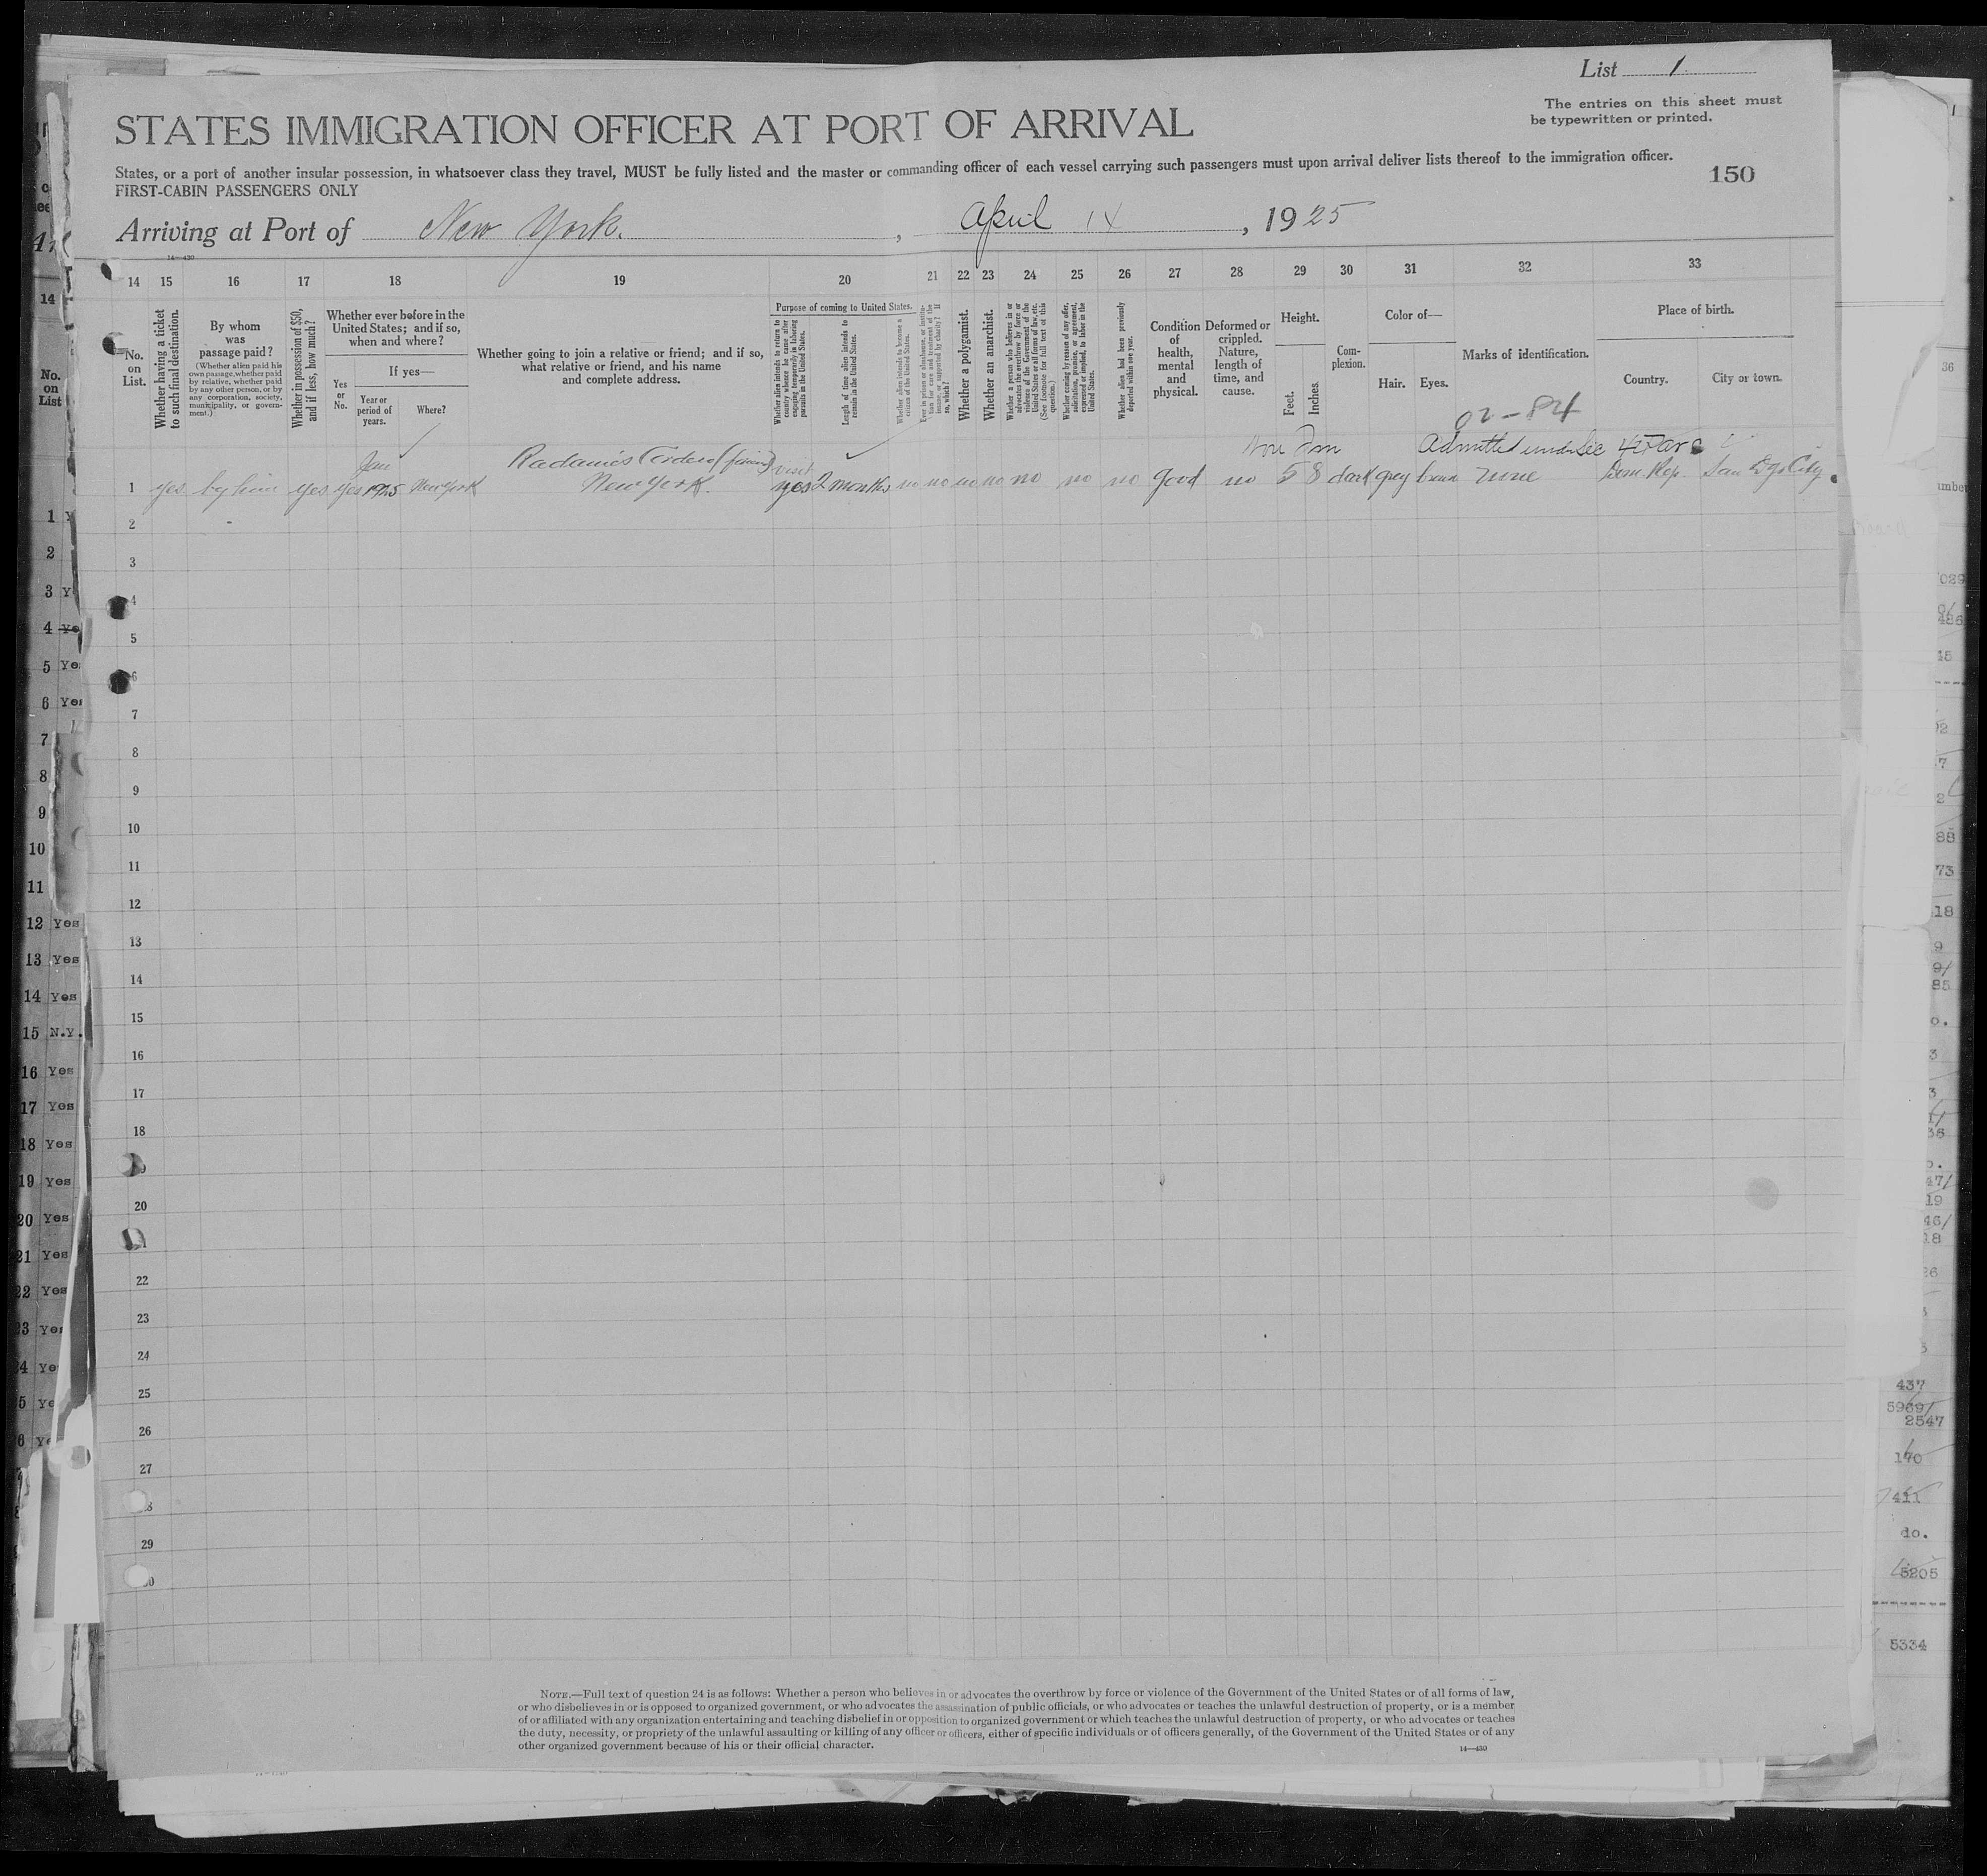 List 1
The entries on this sheet must
be typewritten or printed.
STATES IMMIGRATION OFFICER AT PORT OF ARRIVAL
States, or a port of another insular possession, in whatsoever class they travel, MUST be fully listed and the master or commanding officer of each vessel carrying such passengers must upon arrival deliver lists thereof to the immigration officer.
FIRST-CABIN PASSENGERS ONLY
150
Arriving at Port of New York. , April 14 , 1925
14—430
14 15 16 17 18 19 20 21 22 23 24 25 26 27 28 29 30 31 32 33
No. on List.
Whether having a ticket to such final destination.
By whom was passage paid?
(Whether alien paid his own passage, whether paid by relative, whether paid by any other person, or by any corporation, society, municipality, or government.)
Whether in possession of $50, and if less, how much?
Whether ever before in the United States; and if so, when and where?
If yes—
Yes or No.
Year or period of years.
Where?
Whether going to join a relative or friend; and if so, what relative or friend, and his name and complete address.
Purpose of coming to United States.
Whether alien intends to return to country whence he came after engaging temporarily in laboring pursuits in the United States.
Length of time alien intends to remain in the United States.
Whether alien intends to become a citizen of the United States.
Ever in prison or almshouse, or institution for care and treatment of the insane, or supported by charity? If so, which?
Whether a polygamist.
Whether an anarchist.
Whether a person who believes in or advocates the overthrow by force or violence of the Government of the United States or all forms of law, etc. (See footnote for full text of this question.)
Whether coming by reason of any offer, solicitation, promise, or agreement, expressed or implied, to labor in the United States.
Whether alien had been previously deported within one year.
Condition of health, mental and physical.
Deformed or crippled. Nature, length of time, and cause.
Height.
Feet.
Inches.
Complexion.
Color of—
Hair.
Eyes.
Marks of identification.
Place of birth.
Country.
City or town.
02-84
Jan
Radamés (friend) visit
Admitted under Sec
1 yes by him yes yes 1925 New York New York. yes 2 months no no no no no no no good no 5 8 dark grey brown none Dom. Rep. San Dgo City.
2
3
4
5
6
7
8
9
10
11
12
13
14
15
16
17
18
20
22
23
24
25
26
27
29
NOTE.—Full text of question 24 is as follows: Whether a person who believes in or advocates the overthrow by force or violence of the Government of the United States or of all forms of law,
or who disbelieves in or is opposed to organized government, or who advocates the assassination of public officials, or who advocates or teaches the unlawful destruction of property, or is a member
of or affiliated with any organization entertaining and teaching disbelief in or opposition to organized government or which teaches the unlawful destruction of property, or who advocates or teaches
the duty, necessity, or propriety of the unlawful assaulting or killing of any officer or officers, either of specific individuals or of officers generally, of the Government of the United States or of any
other organized government because of his or their official character.
14—430
14
No. on List
1
2
3
4
5 Yes
6 Yes
7
8
9
10
11
12 Yes
13 Yes
14 Yes
15 N.Y.
16 Yes
17 Yes
18 Yes
19 Yes
20 Yes
21 Yes
22 Yes
36
437
5969/
2547
170
411
do.
5205
5334